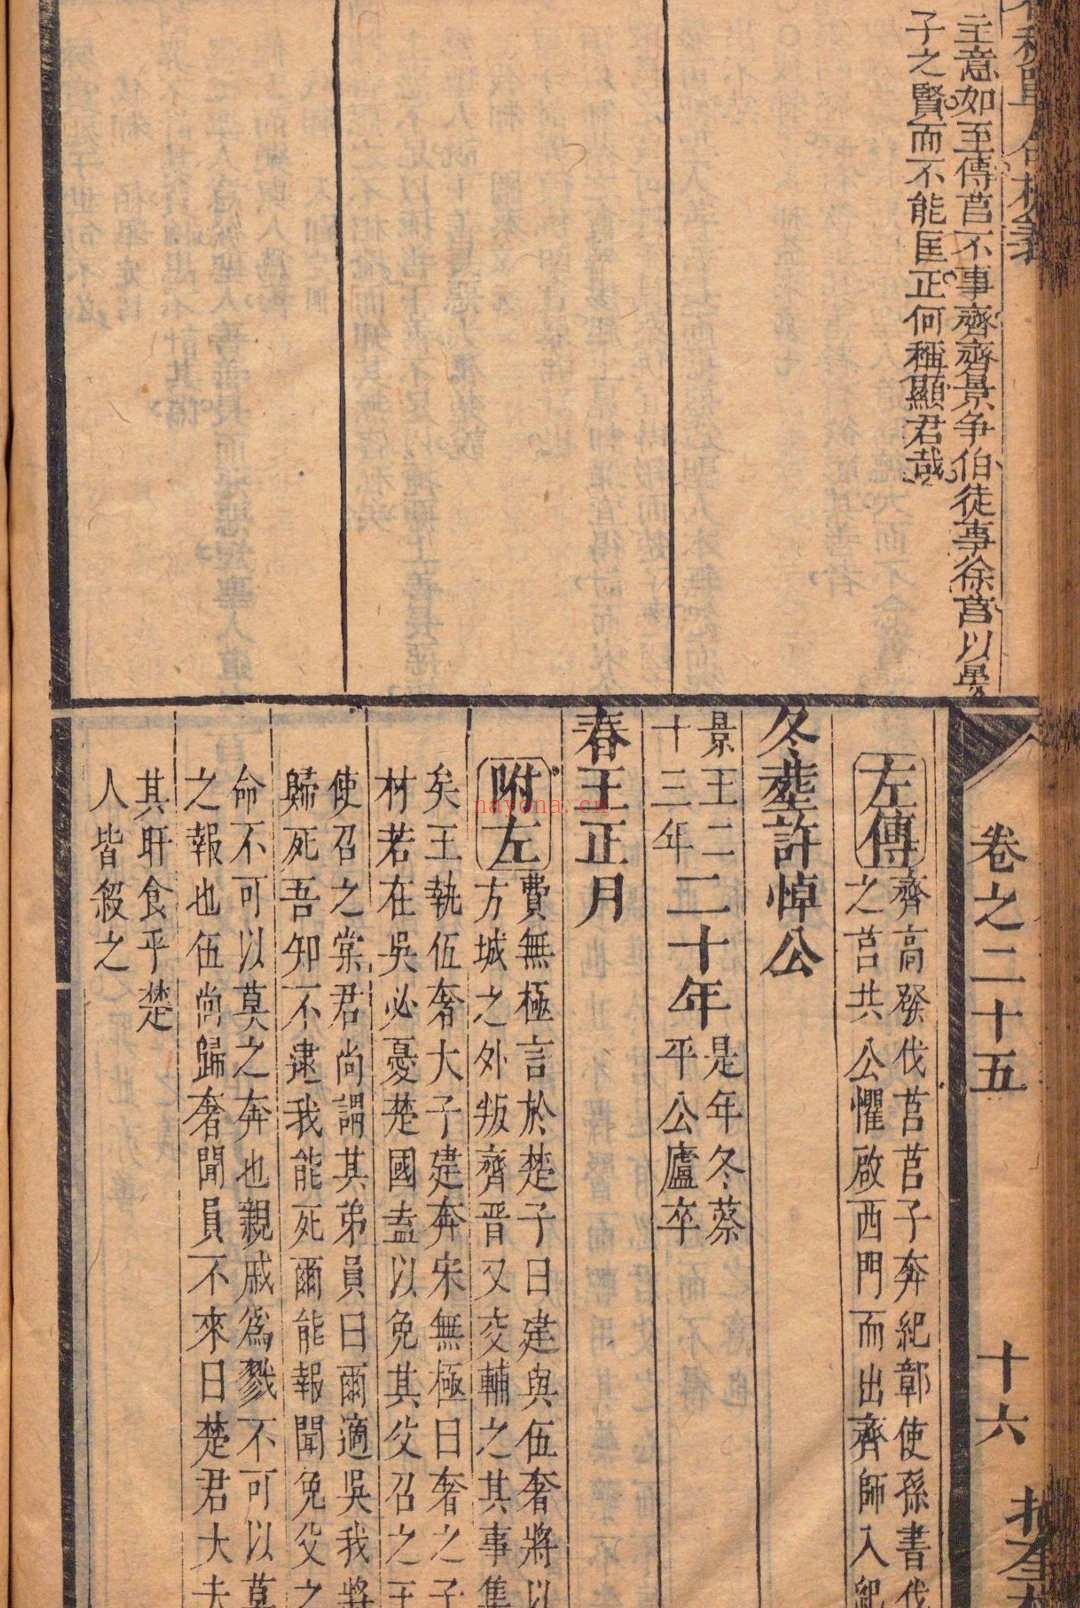 主意如至傳莒不事齊齊景爭伯徒事徐莒以
子之賢而不能匡正何稱顯君哉
卷之二十五
十六
左傳
齊高發伐莒莒子奔紀鄣使孫書伐
之莒共公懼啟西門而出齊師入紀
冬塟許悼公
景王二
十三年
二十年
是年冬蔡
平公廬卒
春王正月
附左
費無極言於楚子曰建與伍奢將以
方城之外叛齊晉又交輔之其事集
矣王執伍奢大子建奔宋無極曰奢之子
材若在吳必憂楚國盍以免其父召之王
使召之棠君尚謂其弟員曰爾適吳我將
歸死吾知不逮我能死爾能報聞免父之
命不可以莫之奔也親戚為戮不可以莫
之報也伍尚歸奢聞員不來曰楚君大夫
其旰食乎楚
人皆殺之
nayona.cn